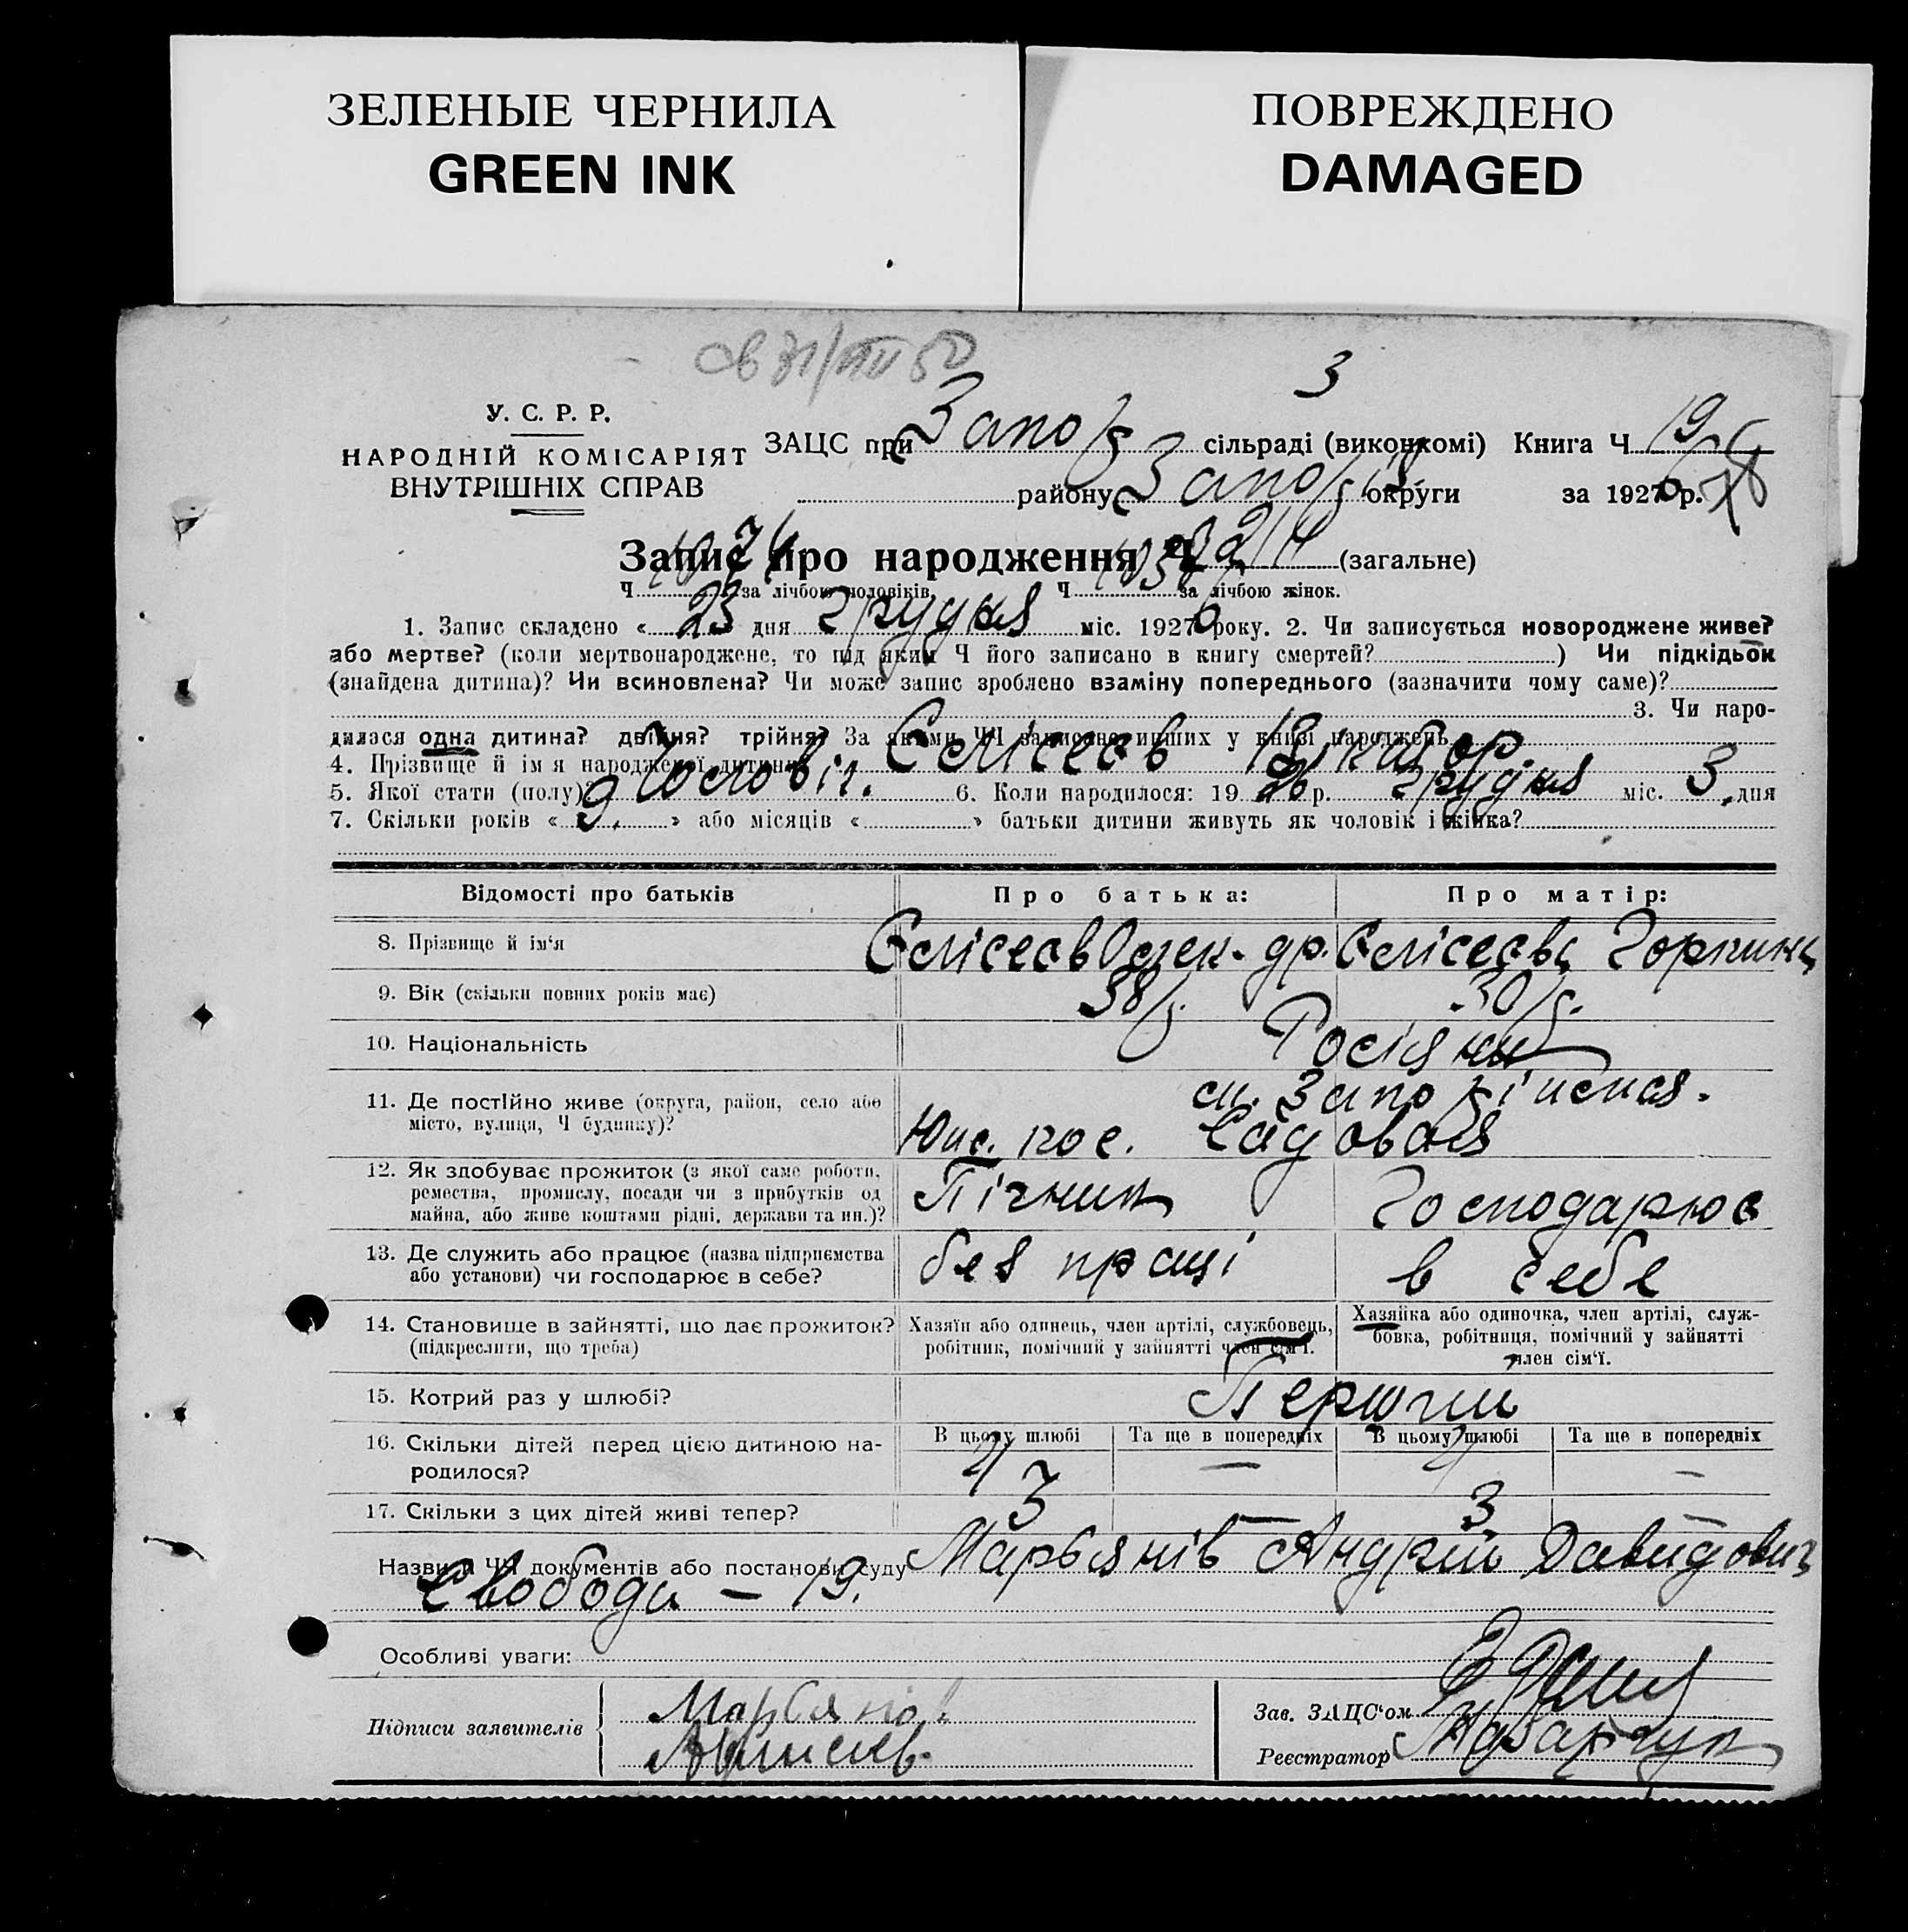 ЗЕЛЕНЫЕ ЧЕРНИЛА
GREEN INK
ПОВРЕЖДЕНО
DAMAGED
3
У. С. Р. Р.
НАРОДНІЙ КОМІСАРІЯТ
ВНУТРІШНІХ СПРАВ
ЗАЦС при Запоріз сільраді (виконкомі) Книга Ч 19
району Запоріз округи за 1926 р.
Запис про народження Ч (загальне)
Ч за лічбою чоловіків. Ч за лічбою жінок.
1. Запис складено « 23 » дня грудня міс. 1926 року. 2. Чи записується новороджене живе?
або мертве? (коли мертвонароджене, то під яким Ч його записано в книгу смертей? ) Чи підкідьок
(знайдена дитина)? Чи всиновлена? Чи може запис зроблено взаміну попереднього (зазначити чому саме)?
3. Чи наро-
дилася одна дитина? двійня? трійня? За якими ЧЧ записано инших у книзі народжень
4. Прізвище й ім'я народженої дитини Єлісеєв Віктор.
5. Якої стати (полу)? Чоловіч. 6. Коли народилося: 1926 р. грудня міс. 3 дня
7. Скільки років « 9. » або місяців « » батьки дитини живуть як чоловік і жінка?
Відомості про батьків Про батька: Про матір:
8. Прізвище й ім'я Єлісеєв Олексдр. Єлісеєва Горпина
9. Вік (скільки повних років має) 38 р. 30 р.
10. Національність Росіяни
11. Де постійно живе (округа, район, село або м. Запоріжжя.
місто, вулиця, Ч будинку)? Южн. пос. Садовая
12. Як здобуває прожиток (з якої саме роботи, Пічник Господарює
ремества, промислу, посади чи з прибутків од
майна, або живе коштами рідні, держави та ин.)?
13. Де служить або працює (назва підприємства без праці в себе
або установи) чи господарює в себе?
14. Становище в зайнятті, що дає прожиток? Хазяїн або одинець, член артілі, службовець, Хазяйка або одиночка, член артілі, служ-
(підкреслити, що треба) робітник, помічний у зайнятті член сім'ї. бовка, робітниця, помічний у зайнятті
член сім'ї.
15. Котрий раз у шлюбі? Перший
16. Скільки дітей перед цією дитиною на- В цьому шлюбі Та ще в попередніх В цьому шлюбі Та ще в попередніх
родилося? — —
17. Скільки з цих дітей живі тепер? 3 — 3 —
Назви й ЧЧ документів або постанови суду Мар'янів Андрій Давидович
Свободи — 19.
Особливі уваги:
Підписи заявителів
Зав. ЗАЦС'ом
Реєстратор